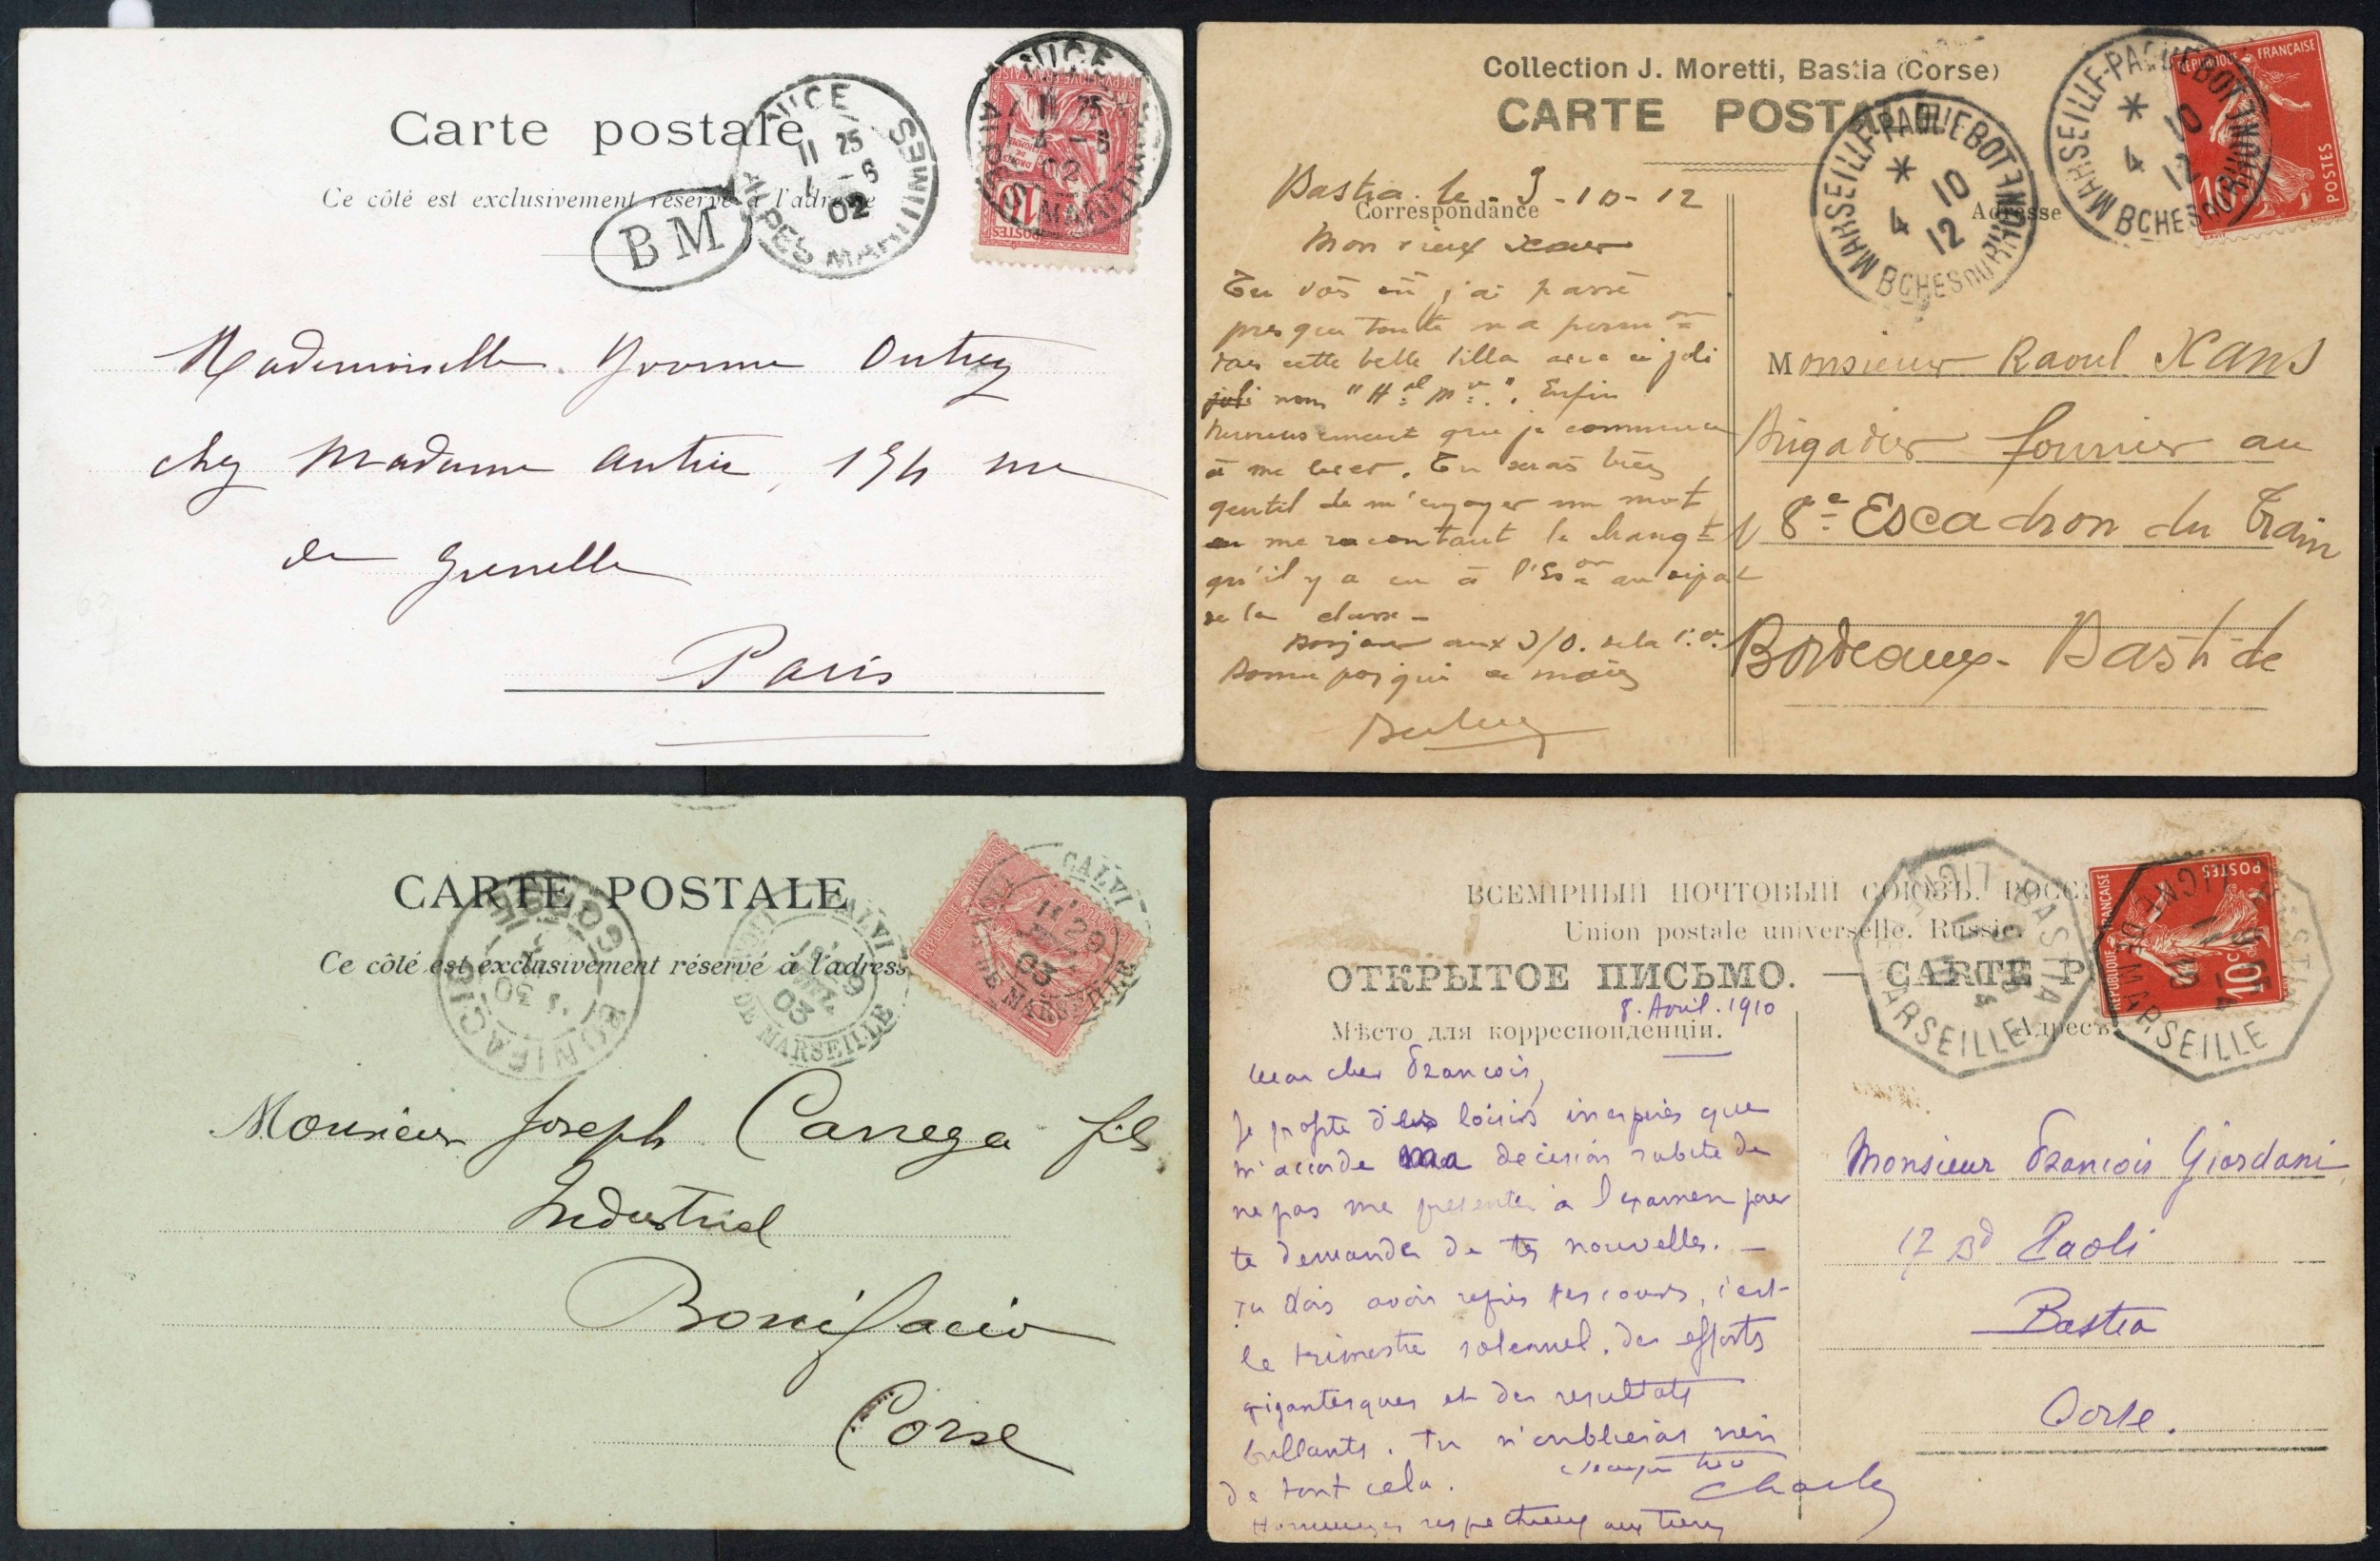 Carte postale
Ce côté est exclusivement réservé à l'adresse
BM
NICE
11 25
02
ALPES MARITIMES
NICE
11 25
4 - 3
02
ALPES MARITIMES
POSTES
10
Mademoiselle Yvonne
chez Madame rue
de Grenelle
Paris
Collection J. Moretti, Bastia (Corse)
CARTE POSTALE
MARSEILLE-PAQUEBOT
* 10
4 12
BCHES DU RHÔNE
MARSEILLE-PAQUEBOT
* 10
4 12
BCHES DU RHÔNE
REPUBLIQUE FRANÇAISE
POSTES
10
Bastia le 9-10-12
Correspondance
Adresse
Mon vieux
Tu vois où j'ai passé
presque toute ma permon
dans cette belle villa avec ce joli
joli nom "Hal Mre". Enfin
heureusement que je commence
à me lever. Tu serais bien
gentil de m'envoyer un mot
en me racontant le changt
qu'il y a eu à l'Eson au
de la classe -
Bonjour aux S/O. de la
Monsieur Raoul Xans
Brigadier fourrier au
8e Escadron du Train
Bordeaux - Bastide
CARTE POSTALE
Ce côté est exclusivement réservé à l'adresse
CORSE
30
BONIFACIO
CALVI
03
DE MARSEILLE
CALVI
29
03
DE MARSEILLE
REPUBLIQUE FRANÇAISE
10
Monsieur Joseph Carrega fils
Industriel
Bonifacio
Corse
ВСЕМІРНЫЙ ПОЧТОВЫЙ СОЮЗЪ. РОССІ
Union postale universelle. Russie.
ОТКРЫТОЕ ПИСЬМО. — CARTE P
8. Avril. 1910
Мѣсто для корреспонденціи.
Адресъ
BASTIA
LIGNE DE MARSEILLE
BASTIA
LIGNE DE MARSEILLE
REPUBLIQUE FRANÇAISE
POSTES
10c
Mon cher François,
Je profite des loisirs inespérés que
m'accorde ma décision subite de
ne pas me présenter à l'examen pour
te demander de tes nouvelles. —
Tu dois avoir repris tes cours, c'est
le trimestre solennel, des efforts
gigantesques et des resultats
brillants. Tu n'oublieras rien
de tout cela.
Charles
Hommages respectueux aux tiens
Monsieur François Giordani
17 Bd Paoli
Bastia
Corse.